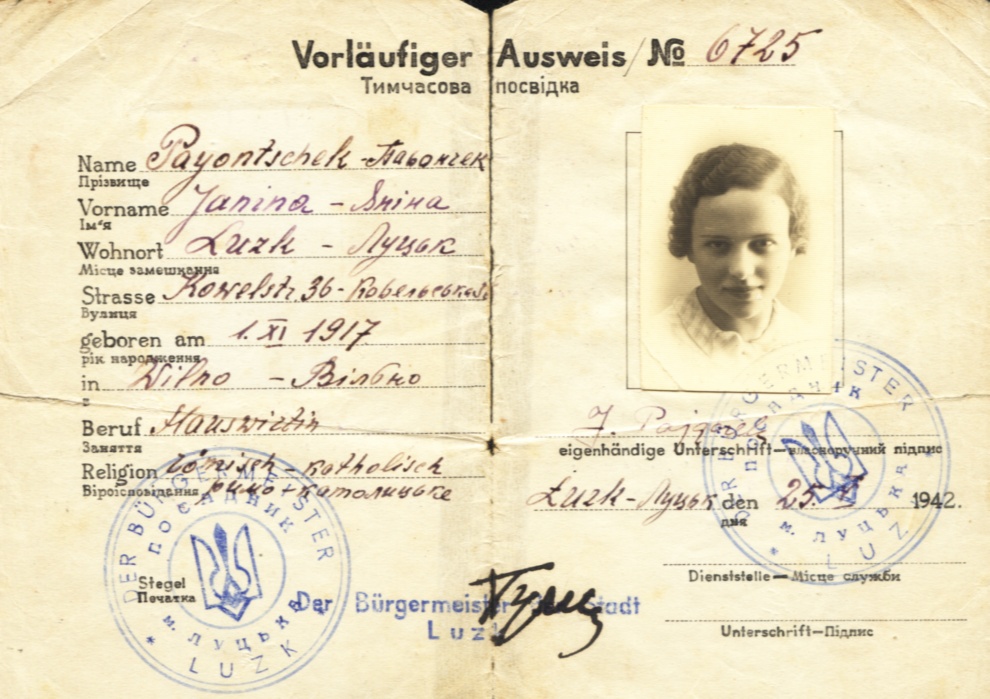 Vorläufiger Ausweis / № 6725
Тимчасова посвідка
Name Payontschek - Паьончек
Прізвище
Vorname Janina - Яніна
Ім'я
Wohnort Luzk - Луцьк
Місце замешкання
Strasse Kowelstr. 36 - Ковельська
Вулиця
geboren am 1. XI 1917
рік народження
in Wilno - Вільно
в
Beruf Hauswirtin
Заняття
Religion römisch - katholisch
Віроісповідання римо + католицьке
eigenhändige Unterschrift — власноручний підпис
Luzk - Луцьк den 25. 1942.
дня
Dienststelle — Місце служби
Unterschrift — Підпис
Siegel
Печатка
DER BÜRGERMEISTER
ПОСАДНИК
м. ЛУЦЬКА
* LUZK *
DER BÜRGERMEISTER
ПОСАДНИК
м. ЛУЦЬКА
* LUZK *
Der Bürgermeister Stadt
Luzk